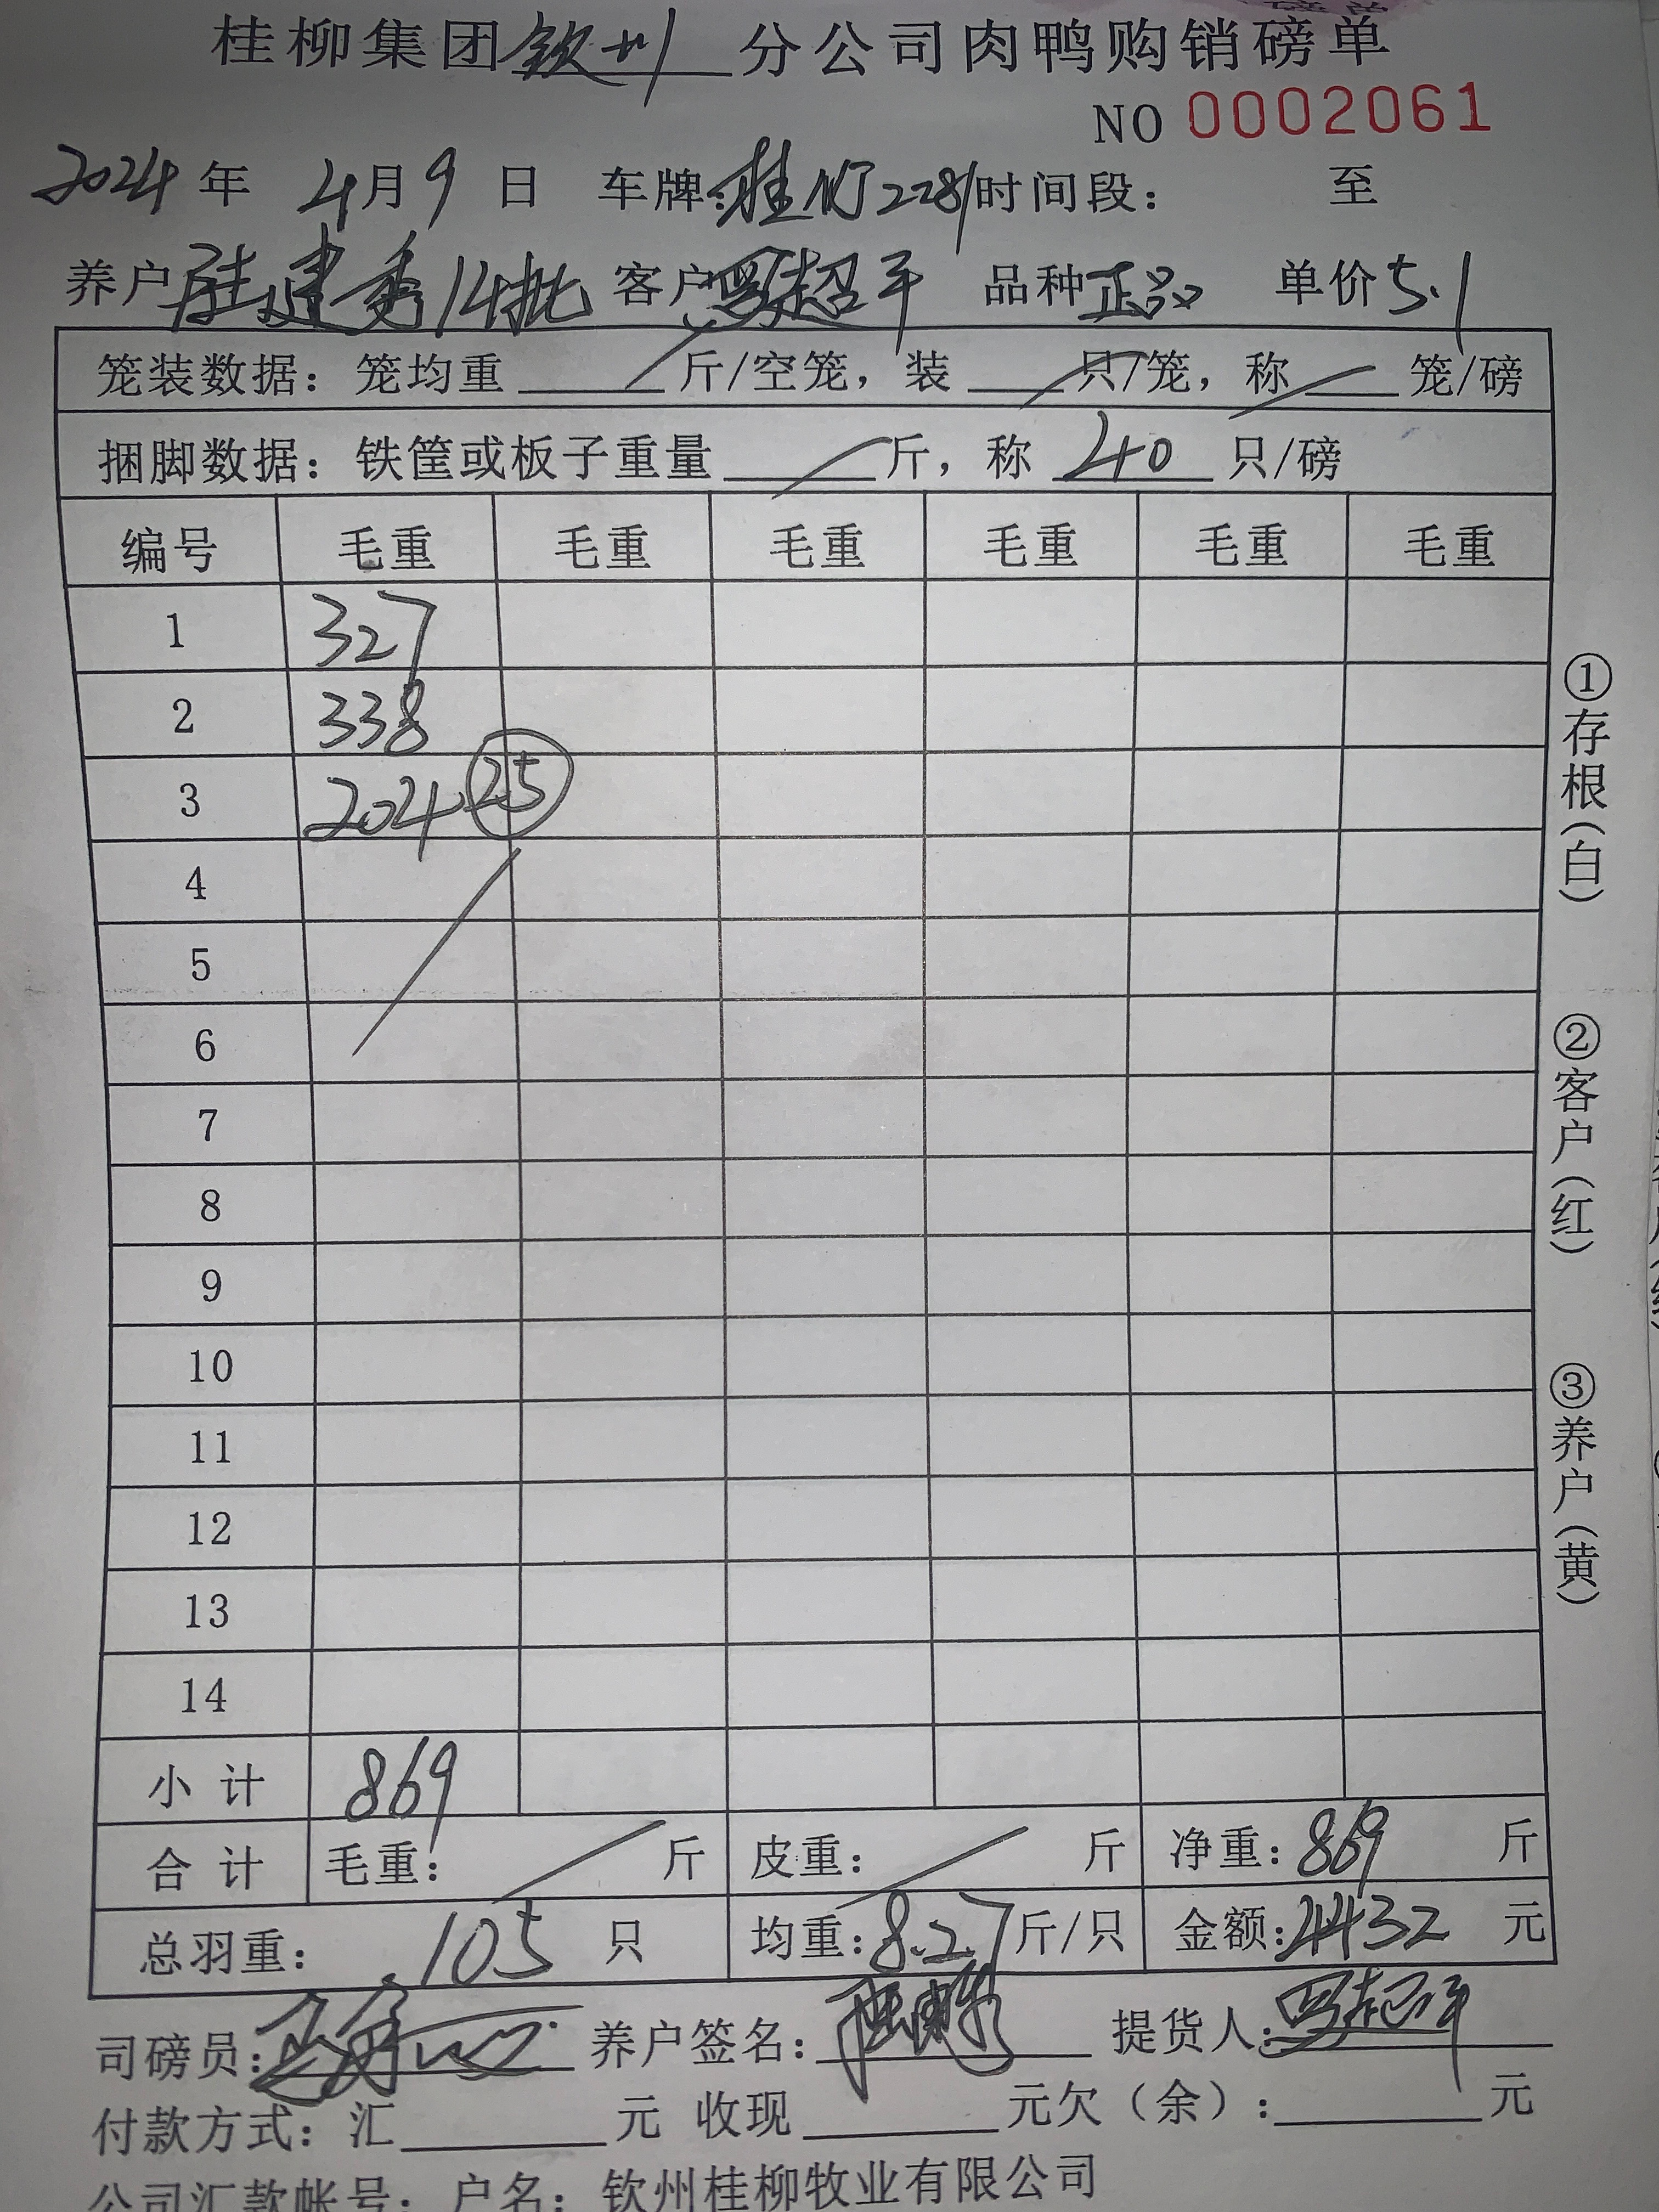 桂柳集团钦州分公司肉鸭购销磅单
NO 0002061
2024年 4月9日 车牌:桂 2281时间段: 至
养户 建秀14批 客户 罗超平 品种 正品 单价5.1
笼装数据: 笼均重 / 斤/空笼, 装 / 只/笼, 称 / 笼/磅
捆脚数据: 铁筐或板子重量 / 斤, 称 40 只/磅
编号 毛重 毛重 毛重 毛重 毛重 毛重
1 327
2 338
3 204 25
4
5
6
7
8
9
10
11
12
13
14
小计 869
合计 毛重: / 斤 皮重: / 斤 净重: 869 斤
总羽重: 105 只 均重: 8.27斤/只 金额: 4432 元
司磅员: 养户签名: 提货人: 罗超平
付款方式: 汇 元 收现 元欠(余): 元
公司汇款帐号: 户名: 钦州桂柳牧业有限公司
①存根(白)
②客户(红)
③养户(黄)